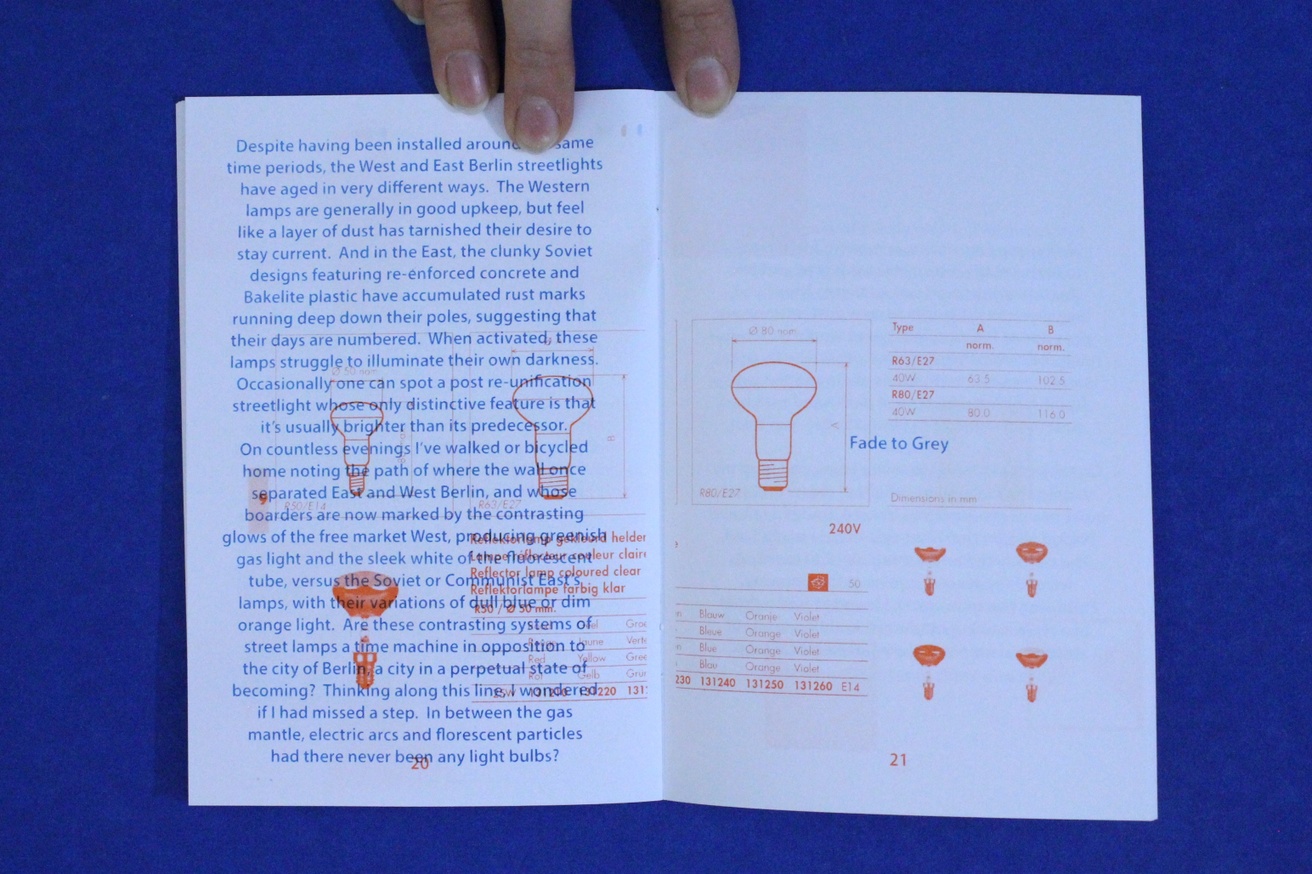 Despite having been installed around same
time periods, the West and East Berlin streetlights
have aged in very different ways. The Western
lamps are generally in good upkeep, but feel
like a layer of dust has tarnished their desire to
stay current. And in the East, the clunky Soviet
designs featuring re-enforced concrete and
Bakelite plastic have accumulated rust marks
running deep down their poles, suggesting that
their days are numbered. When activated, these
lamps struggle to illuminate their own darkness.
Occasionally one can spot a post re-unification
streetlight whose only distinctive feature is that
it's usually brighter than its predecessor.
On countless evenings I've walked or bicycled
home noting the path of where the wall once
separated East and West Berlin, and whose
boarders are now marked by the contrasting
glows of the free market West, producing greenish
gas light and the sleek white of the fluorescent
tube, versus the Soviet or Communist East's
lamps, with their variations of dull blue or dim
orange light. Are these contrasting systems of
street lamps a time machine in opposition to
the city of Berlin, a city in a perpetual state of
becoming? Thinking along this line, I wondered
if I had missed a step. In between the gas
mantle, electric arcs and florescent particles
had there never been any light bulbs?
Ø 50 nom
R50/E14
B
R63/E27
Reflektorlamp gekleurd helder
Lampe réflecteur couleur claire
Reflector lamp coloured clear
Reflektorlampe farbig klar
R50 / Ø 50 mm.
Geel Groe
Rouge Jaune Verte
Red Yellow Gree
Rot Gelb Grun
25W 131220 131
20
Ø 80 nom
A
R80/E27
Type A B
norm. norm.
R63/E27
40W 63.5 102.5
R80/E27
40W 80.0 116.0
Fade to Grey
Dimensions in mm
240V
50
n Blauw Oranje Violet
Bleue Orange Violet
n Blue Orange Violet
Blau Orange Violet
230 131240 131250 131260 E14
21